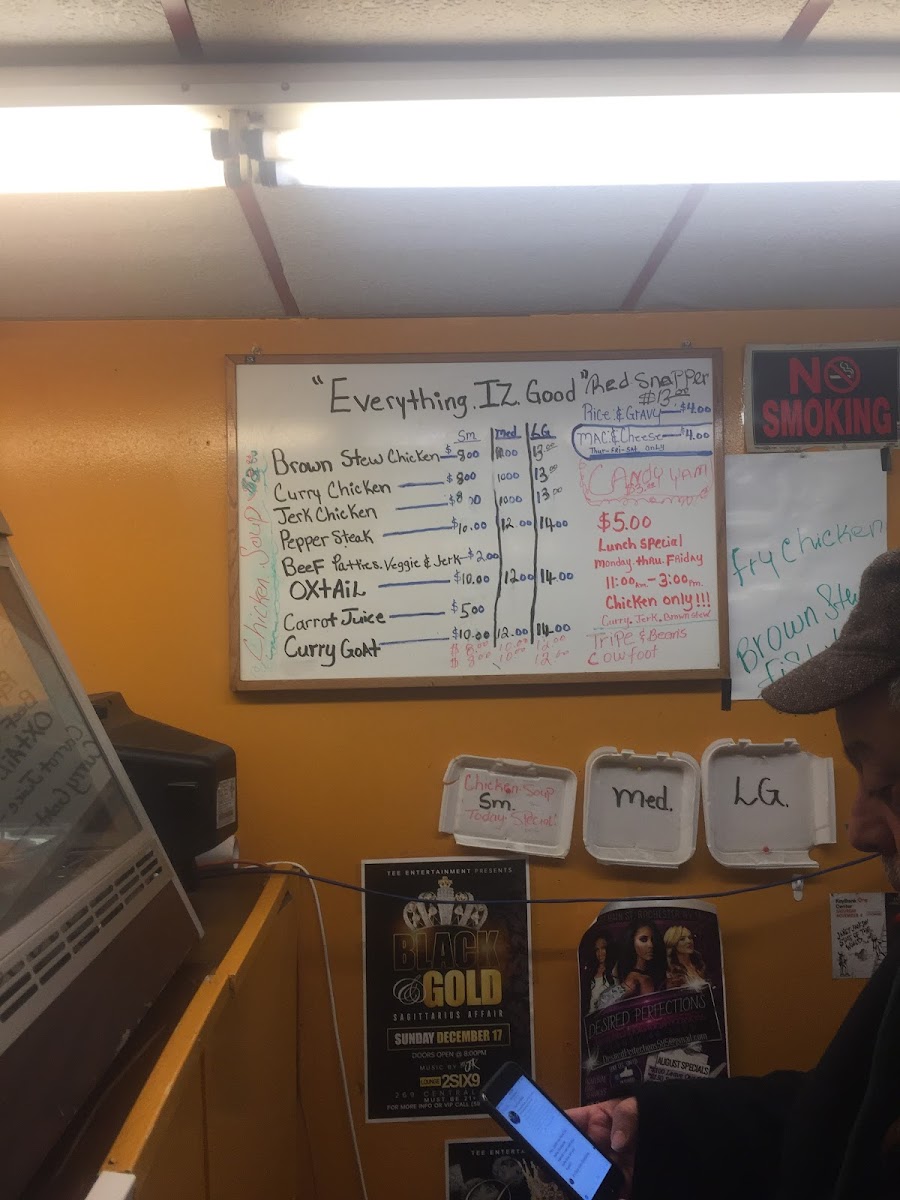 "Everything.IZ.Good"
Red Snapper
$13.00
Rice & Gravy $4.00
MAC & Cheese $4.00
Thur-Fri-Sat only
CANDY YAM
Sm med LG
Brown Stew Chicken $8.00 13.00
Curry Chicken $8.00 10.00 13.00
Jerk Chicken $8.00 10.00 13.00
Pepper Steak $10.00 12.00 14.00
BEEF Patties. Veggie & Jerk $2.00
OXtAiL $10.00 12.00 14.00
Carrot Juice $5.00
Curry GOAt $10.00 12.00 14.00
$8.00 10.00 12.00
Chicken Soup
$5.00
Lunch Special
Monday. thru. Friday
11:00 am. - 3:00 Pm.
Chicken only!!!
Curry. Jerk. Brown stew
Tripe & Beans
Cow foot
NO
SMOKING
Fry Chicken
Brown Stew
Chicken Soup
Sm.
Today Special
med.
LG.
BEEF
OXtAiL
Carrot Juice
Curry Goat
TEE ENTERTAINMENT PRESENTS
BLACK
& GOLD
SAGITTARIUS AFFAIR
SUNDAY DECEMBER 17
DOORS OPEN @ 8:00PM
MUSIC BY
LOUNGE 2SIX9
269 CENTRAL
MUST BE 21+
FOR MORE INFO OR VIP CALL
DESIRED PERFECTIONS
AUGUST SPECIALS
TEE ENTERTA